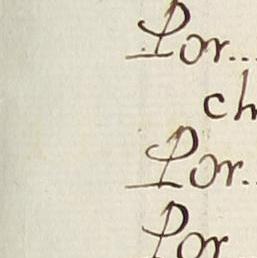 Por...
ch
Por..
Por